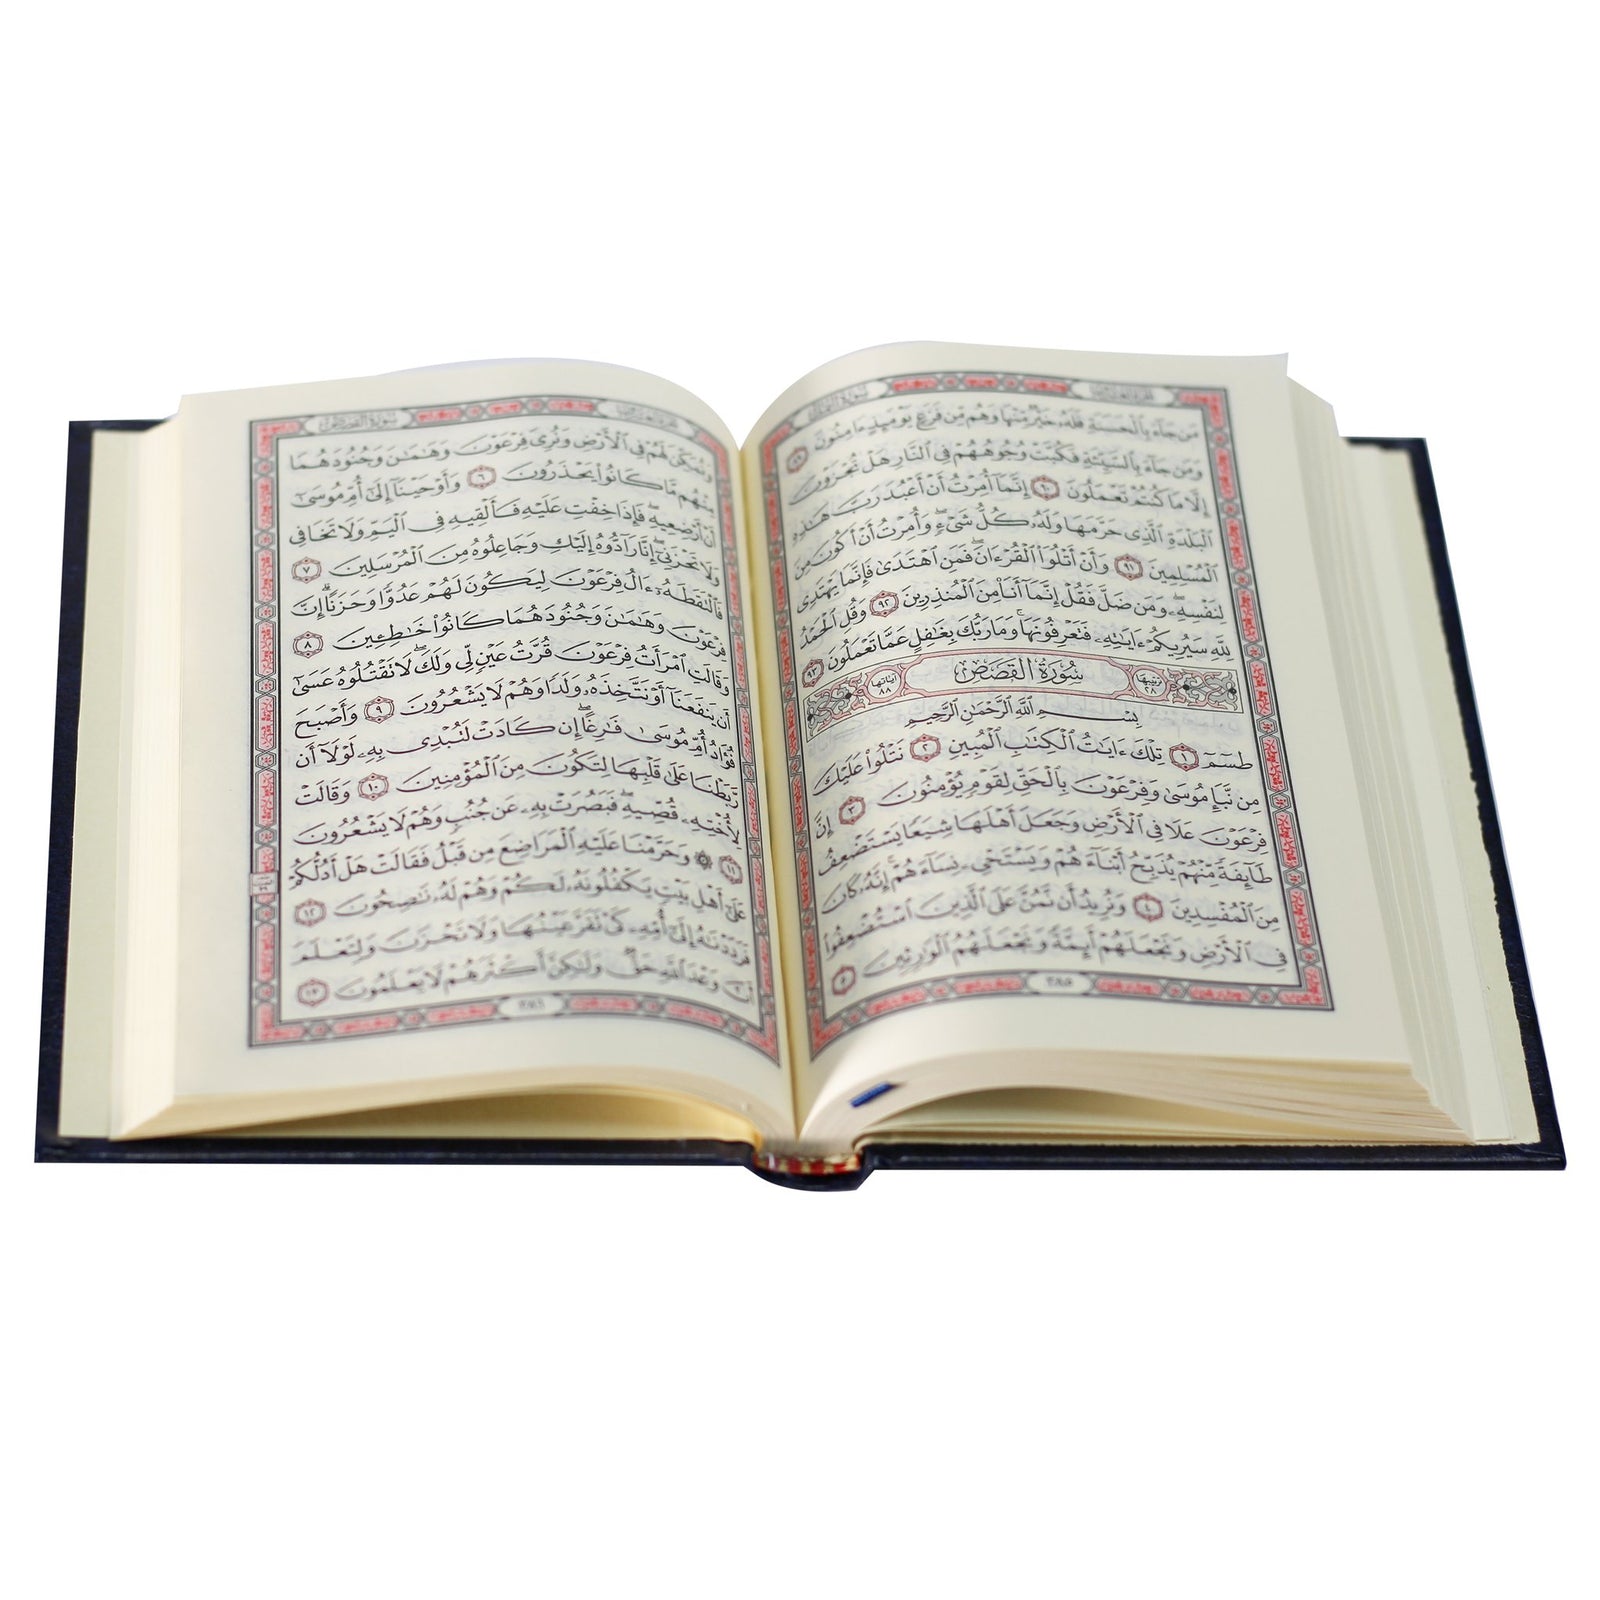 سُورَةُ النَّمْلِ
مَن جَآءَ بِٱلْحَسَنَةِ فَلَهُۥ خَيْرٌ مِّنْهَا وَهُم مِّن فَزَعٍ يَوْمَئِذٍ ءَامِنُونَ ٨٩
وَمَن جَآءَ بِٱلسَّيِّئَةِ فَكُبَّتْ وُجُوهُهُمْ فِى ٱلنَّارِ هَلْ تُجْزَوْنَ
إِلَّا مَا كُنتُمْ تَعْمَلُونَ ٩٠ إِنَّمَآ أُمِرْتُ أَنْ أَعْبُدَ رَبَّ هَٰذِهِ
ٱلْبَلْدَةِ ٱلَّذِى حَرَّمَهَا وَلَهُۥ كُلُّ شَىْءٍ ۖ وَأُمِرْتُ أَنْ أَكُونَ مِنَ
ٱلْمُسْلِمِينَ ٩١ وَأَنْ أَتْلُوَا۟ ٱلْقُرْءَانَ ۖ فَمَنِ ٱهْتَدَىٰ فَإِنَّمَا يَهْتَدِى
لِنَفْسِهِۦ ۖ وَمَن ضَلَّ فَقُلْ إِنَّمَآ أَنَا۠ مِنَ ٱلْمُنذِرِينَ ٩٢ وَقُلِ ٱلْحَمْدُ
لِلَّهِ سَيُرِيكُمْ ءَايَٰتِهِۦ فَتَعْرِفُونَهَا ۚ وَمَا رَبُّكَ بِغَٰفِلٍ عَمَّا تَعْمَلُونَ ٩٣
ترتيبها ٢٨ سُورَةُ القَصَصِ آياتها ٨٨
بِسْمِ ٱللَّهِ ٱلرَّحْمَٰنِ ٱلرَّحِيمِ
طسٓمٓ ١ تِلْكَ ءَايَٰتُ ٱلْكِتَٰبِ ٱلْمُبِينِ ٢ نَتْلُوا۟ عَلَيْكَ
مِن نَّبَإِ مُوسَىٰ وَفِرْعَوْنَ بِٱلْحَقِّ لِقَوْمٍ يُؤْمِنُونَ ٣ إِنَّ
فِرْعَوْنَ عَلَا فِى ٱلْأَرْضِ وَجَعَلَ أَهْلَهَا شِيَعًا يَسْتَضْعِفُ
طَآئِفَةً مِّنْهُمْ يُذَبِّحُ أَبْنَآءَهُمْ وَيَسْتَحْىِۦ نِسَآءَهُمْ ۚ إِنَّهُۥ كَانَ
مِنَ ٱلْمُفْسِدِينَ ٤ وَنُرِيدُ أَن نَّمُنَّ عَلَى ٱلَّذِينَ ٱسْتُضْعِفُوا۟
فِى ٱلْأَرْضِ وَنَجْعَلَهُمْ أَئِمَّةً وَنَجْعَلَهُمُ ٱلْوَٰرِثِينَ ٥
٣٨٥
سُورَةُ القَصَصِ
وَنُمَكِّنَ لَهُمْ فِى ٱلْأَرْضِ وَنُرِىَ فِرْعَوْنَ وَهَٰمَٰنَ وَجُنُودَهُمَا
مِنْهُم مَّا كَانُوا۟ يَحْذَرُونَ ٦ وَأَوْحَيْنَآ إِلَىٰٓ أُمِّ مُوسَىٰٓ
أَنْ أَرْضِعِيهِ ۖ فَإِذَا خِفْتِ عَلَيْهِ فَأَلْقِيهِ فِى ٱلْيَمِّ وَلَا تَخَافِى
وَلَا تَحْزَنِىٓ ۖ إِنَّا رَآدُّوهُ إِلَيْكِ وَجَاعِلُوهُ مِنَ ٱلْمُرْسَلِينَ ٧
فَٱلْتَقَطَهُۥٓ ءَالُ فِرْعَوْنَ لِيَكُونَ لَهُمْ عَدُوًّا وَحَزَنًا ۗ إِنَّ
فِرْعَوْنَ وَهَٰمَٰنَ وَجُنُودَهُمَا كَانُوا۟ خَٰطِـِٔينَ ٨
وَقَالَتِ ٱمْرَأَتُ فِرْعَوْنَ قُرَّتُ عَيْنٍ لِّى وَلَكَ ۖ لَا تَقْتُلُوهُ عَسَىٰٓ
أَن يَنفَعَنَآ أَوْ نَتَّخِذَهُۥ وَلَدًا وَهُمْ لَا يَشْعُرُونَ ٩ وَأَصْبَحَ
فُؤَادُ أُمِّ مُوسَىٰ فَٰرِغًا ۖ إِن كَادَتْ لَتُبْدِى بِهِۦ لَوْلَآ أَن
رَّبَطْنَا عَلَىٰ قَلْبِهَا لِتَكُونَ مِنَ ٱلْمُؤْمِنِينَ ١٠ وَقَالَتْ
لِأُخْتِهِۦ قُصِّيهِ ۖ فَبَصُرَتْ بِهِۦ عَن جُنُبٍ وَهُمْ لَا يَشْعُرُونَ
١١ ۞ وَحَرَّمْنَا عَلَيْهِ ٱلْمَرَاضِعَ مِن قَبْلُ فَقَالَتْ هَلْ أَدُلُّكُمْ
عَلَىٰٓ أَهْلِ بَيْتٍ يَكْفُلُونَهُۥ لَكُمْ وَهُمْ لَهُۥ نَٰصِحُونَ ١٢
فَرَدَدْنَٰهُ إِلَىٰٓ أُمِّهِۦ كَىْ تَقَرَّ عَيْنُهَا وَلَا تَحْزَنَ وَلِتَعْلَمَ
أَنَّ وَعْدَ ٱللَّهِ حَقٌّ وَلَٰكِنَّ أَكْثَرَهُمْ لَا يَعْلَمُونَ ١٣
٣٨٦